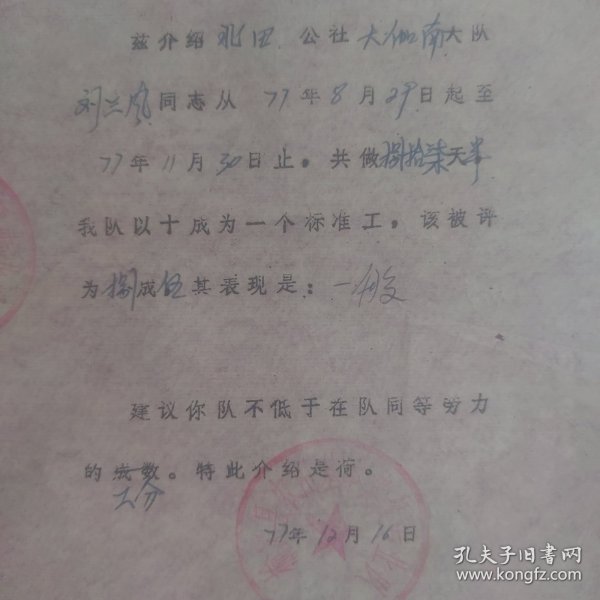 兹介绍 北田 公社大伽南大队
刘兰凤同志从 77年8月29日起至
77年11月30日止。共做捌拾柒天半
我队以十成为一个标准工,该被评
为捌成伍其表现是:一般
建议你队不低于在队同等劳力
的成数。特此介绍是荷。
工分
77年12月16日
孔夫子旧书网
www.kongfz.com